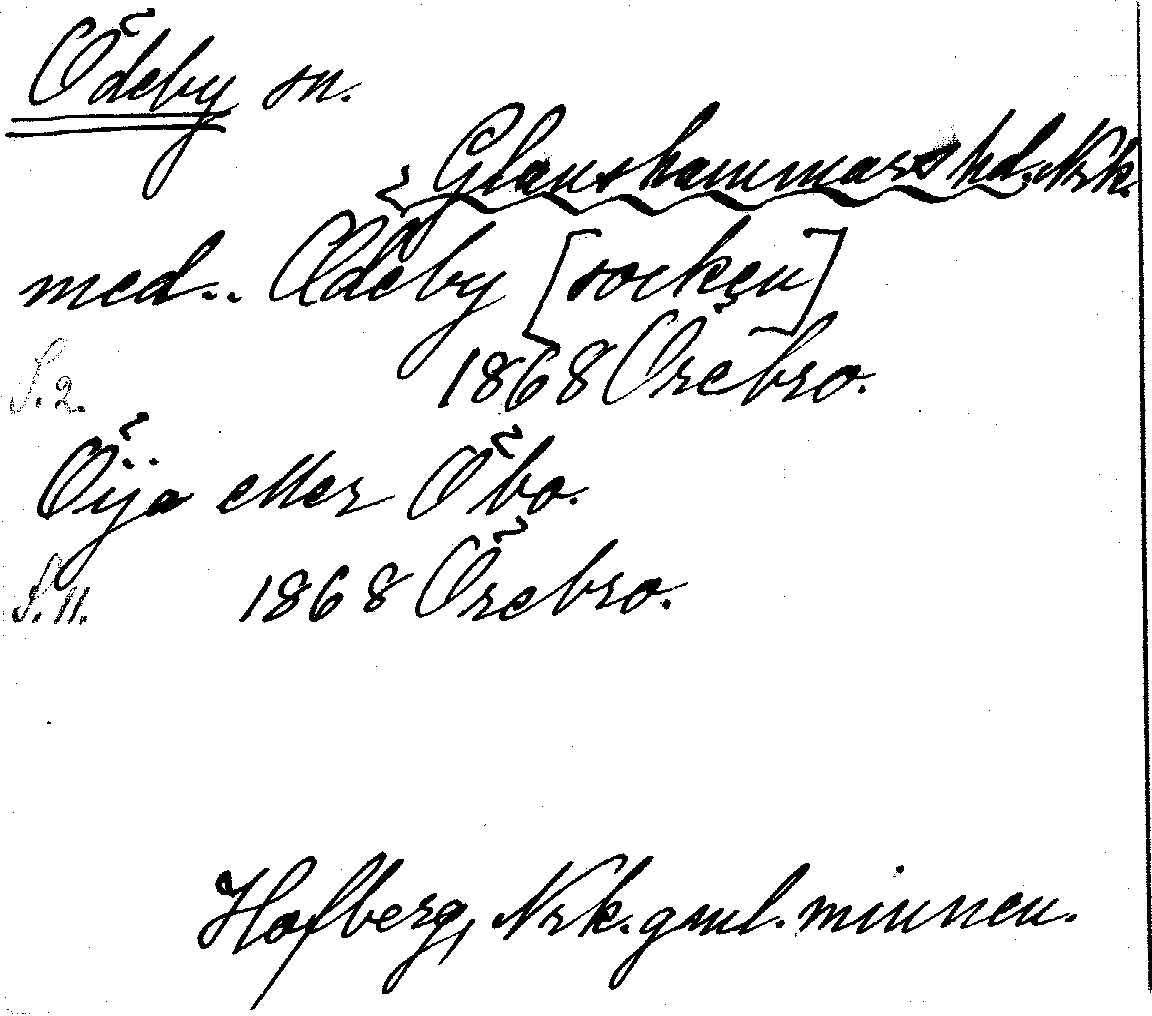 Ödeby sn.
Glanshammars hd. Nrk.
med.. Ödeby [socken]
S. 2. 1868 Örebro.
Öija eller Öbo.
S. 11. 1868 Örebro.
Hofberg, Nrk. gml. minnen.